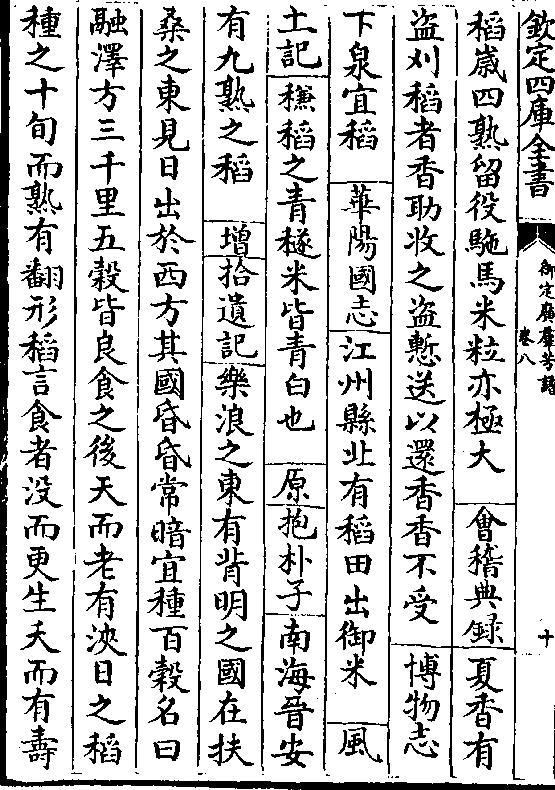 欽定四庫全書
御定廣羣芳譜
卷八
十
稻歲四熟留役駞馬米粒亦極大　會稽典録　夏香有
盗刈稻者香助收之盗慙送以還香香不受　博物志
下泉宜稻　華陽國志　江州縣北有稻田出御米　風
土記　穮稻之青穟米皆青白也　原　抱朴子　南海晉安
有九熟之稻　增　拾遺記　樂浪之東有背明之國在扶
桑之東見日出於西方其國昏昏常暗宜種百穀名曰
融澤方三千里五穀皆良食之後天而老有浹日之稻
種之十旬而熟有翻形稻言食者没而更生夭而有壽